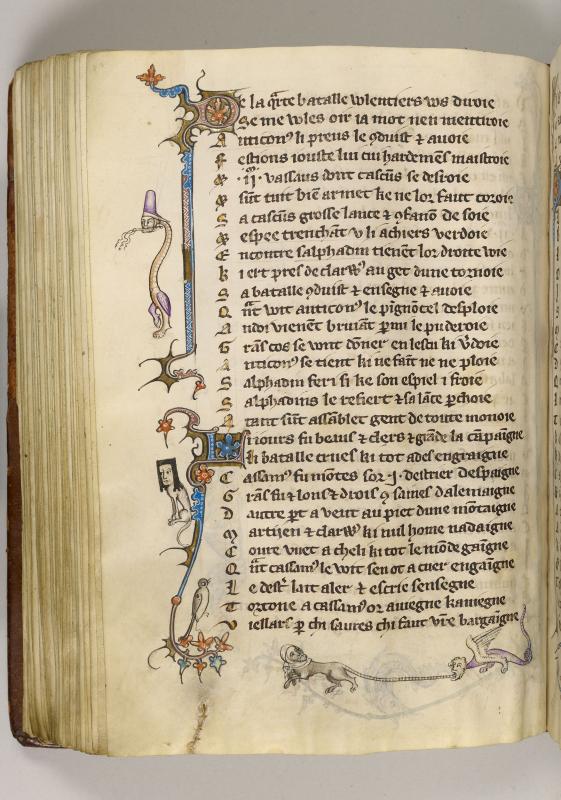 De la q̃rte batalle wlentiers w9 diroie
Se me wles oir ia mot nen mentiroie
Anticon9 li preus le 9duist ⁊ auoie
Festions iouste lui cui hardemẽs maistroie
⁊ .ij. vassaus dont cascũs se desroie
⁊ sũt tuit biẽ armet ke ne lor faut coroie
Sa cascũs grosse lance ⁊ 9fanõ de soie
⁊ espee trenchãt v li achiers verdoie
Encontre salphadin tienẽt lor droite voie
Kiert pres de clarw9 au get dune tornoie
Sa batalle 9duist ⁊ ensegne ⁊ auoie
Qñt voit anticon9 le pignõcel desploie
Andoi vienẽt bruiãt permi le puderoie
Grãs cos se vont dõner en lescu ki v̾doie
Anticon9 se tient ki ne fait ne ne ploie
Salphadin feri si ke son espiel i froie
Salphadins le refiert ⁊ sa lãce pechoie
Atant sũt assãblet gent de toute monoie
Li iours fu beaus ⁊ clers ⁊ grãde la cãpaigne
Li batalle crues ki tot ades engraigne
Cassam9 fu mõtes sor .i. destrier despaigne
Grãs fu ⁊ lons ⁊ drois 9 saines dalemaigne
Dautre pt a vent au piet dune mõtaigne
Martijen ⁊ clarw9 ki nul home nadaigne
Coure vuet a cheli ki tot le mõde gaĩgne
Qñt cassam9 le voit sen ot a cuer engaĩgne
Le dest̾ lait aler ⁊ escrie sensegne
Tortone a cassam9 or auiegne kauiegne
Viellars p chi saures chi faut vr̃e bargaĩgne